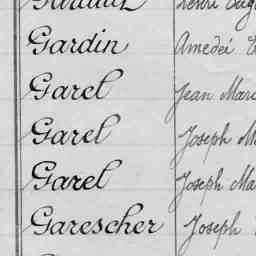 Gardin Amedei
Garel Jean Marc
Garel Joseph M
Garel Joseph Ma
Garescher Joseph